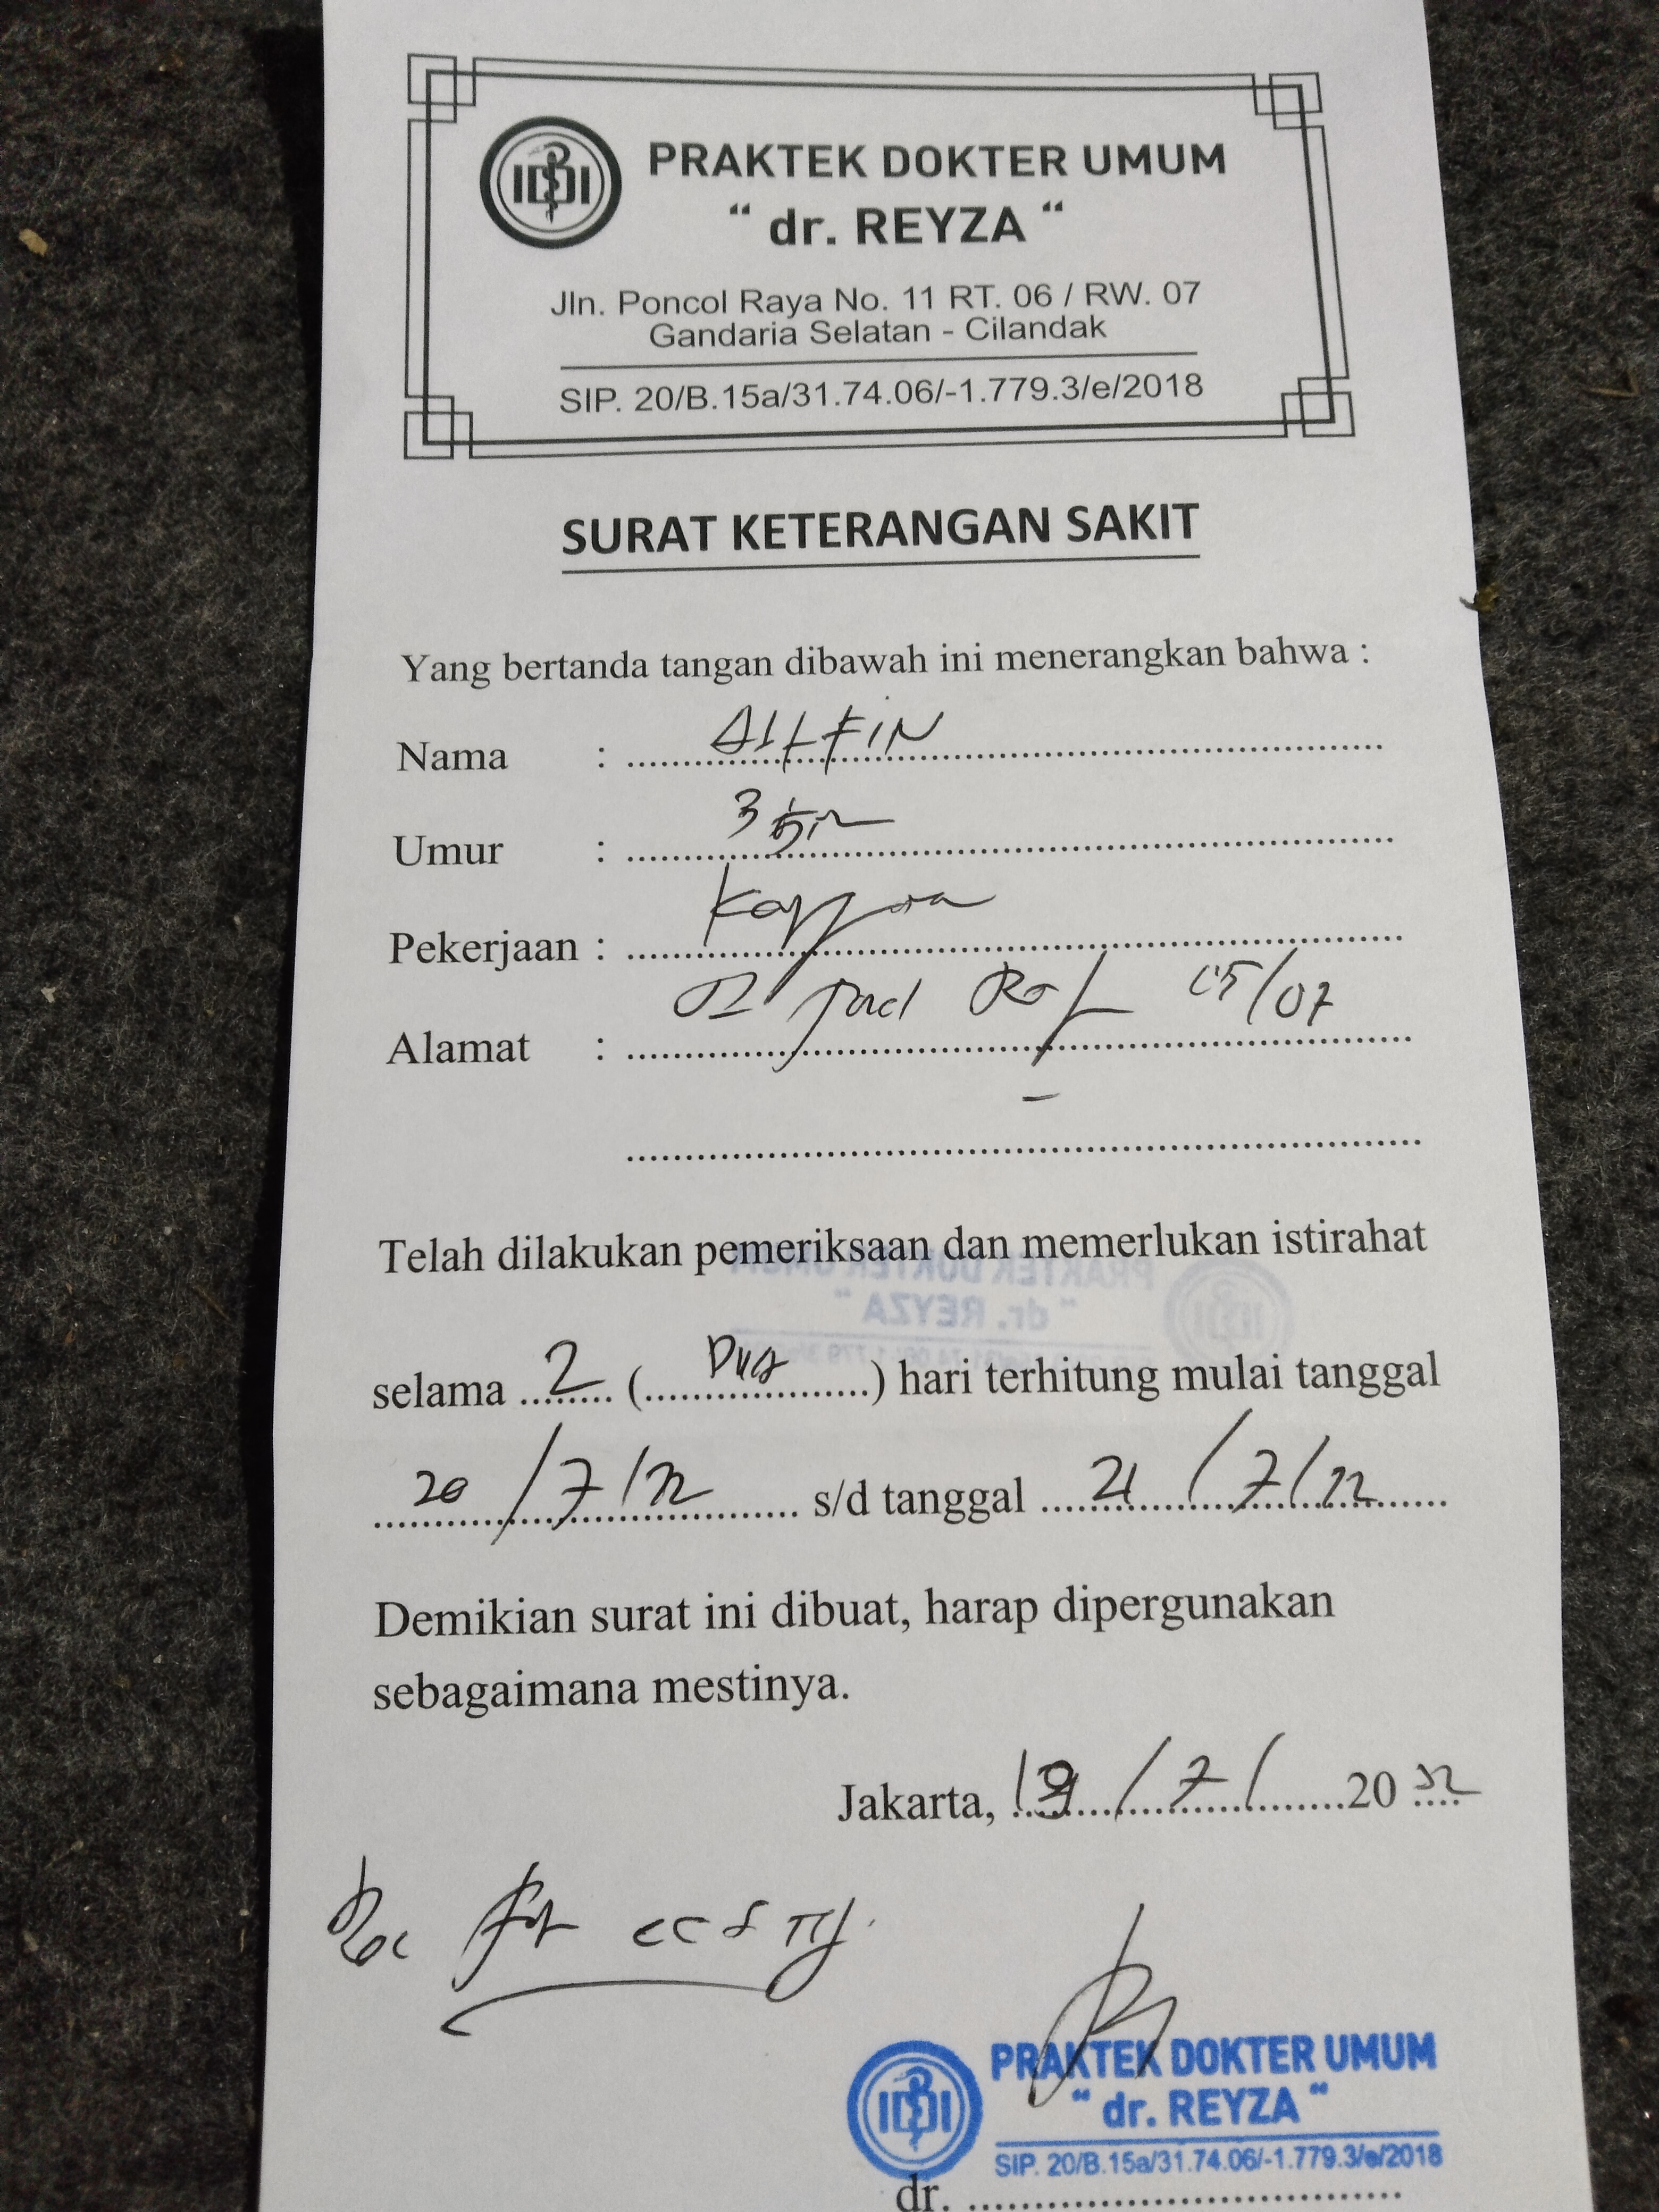 PRAKTEK DOKTER UMUM
“ dr. REYZA “
Jln. Poncol Raya No. 11 RT. 06 / RW. 07
Gandaria Selatan - Cilandak
SIP. 20/B.15a/31.74.06/-1.779.3/e/2018
SURAT KETERANGAN SAKIT
Yang bertanda tangan dibawah ini menerangkan bahwa :
Nama :
Umur :
Pekerjaan :
Alamat : 05/07
Telah dilakukan pemeriksaan dan memerlukan istirahat
selama 2 (Dua) hari terhitung mulai tanggal
20/7/22 s/d tanggal 21/7/22
Demikian surat ini dibuat, harap dipergunakan
sebagaimana mestinya.
Jakarta, 19/7/2022
PRAKTEK DOKTER UMUM
“ dr. REYZA “
SIP. 20/B.15a/31.74.06/-1.779.3/e/2018
dr.